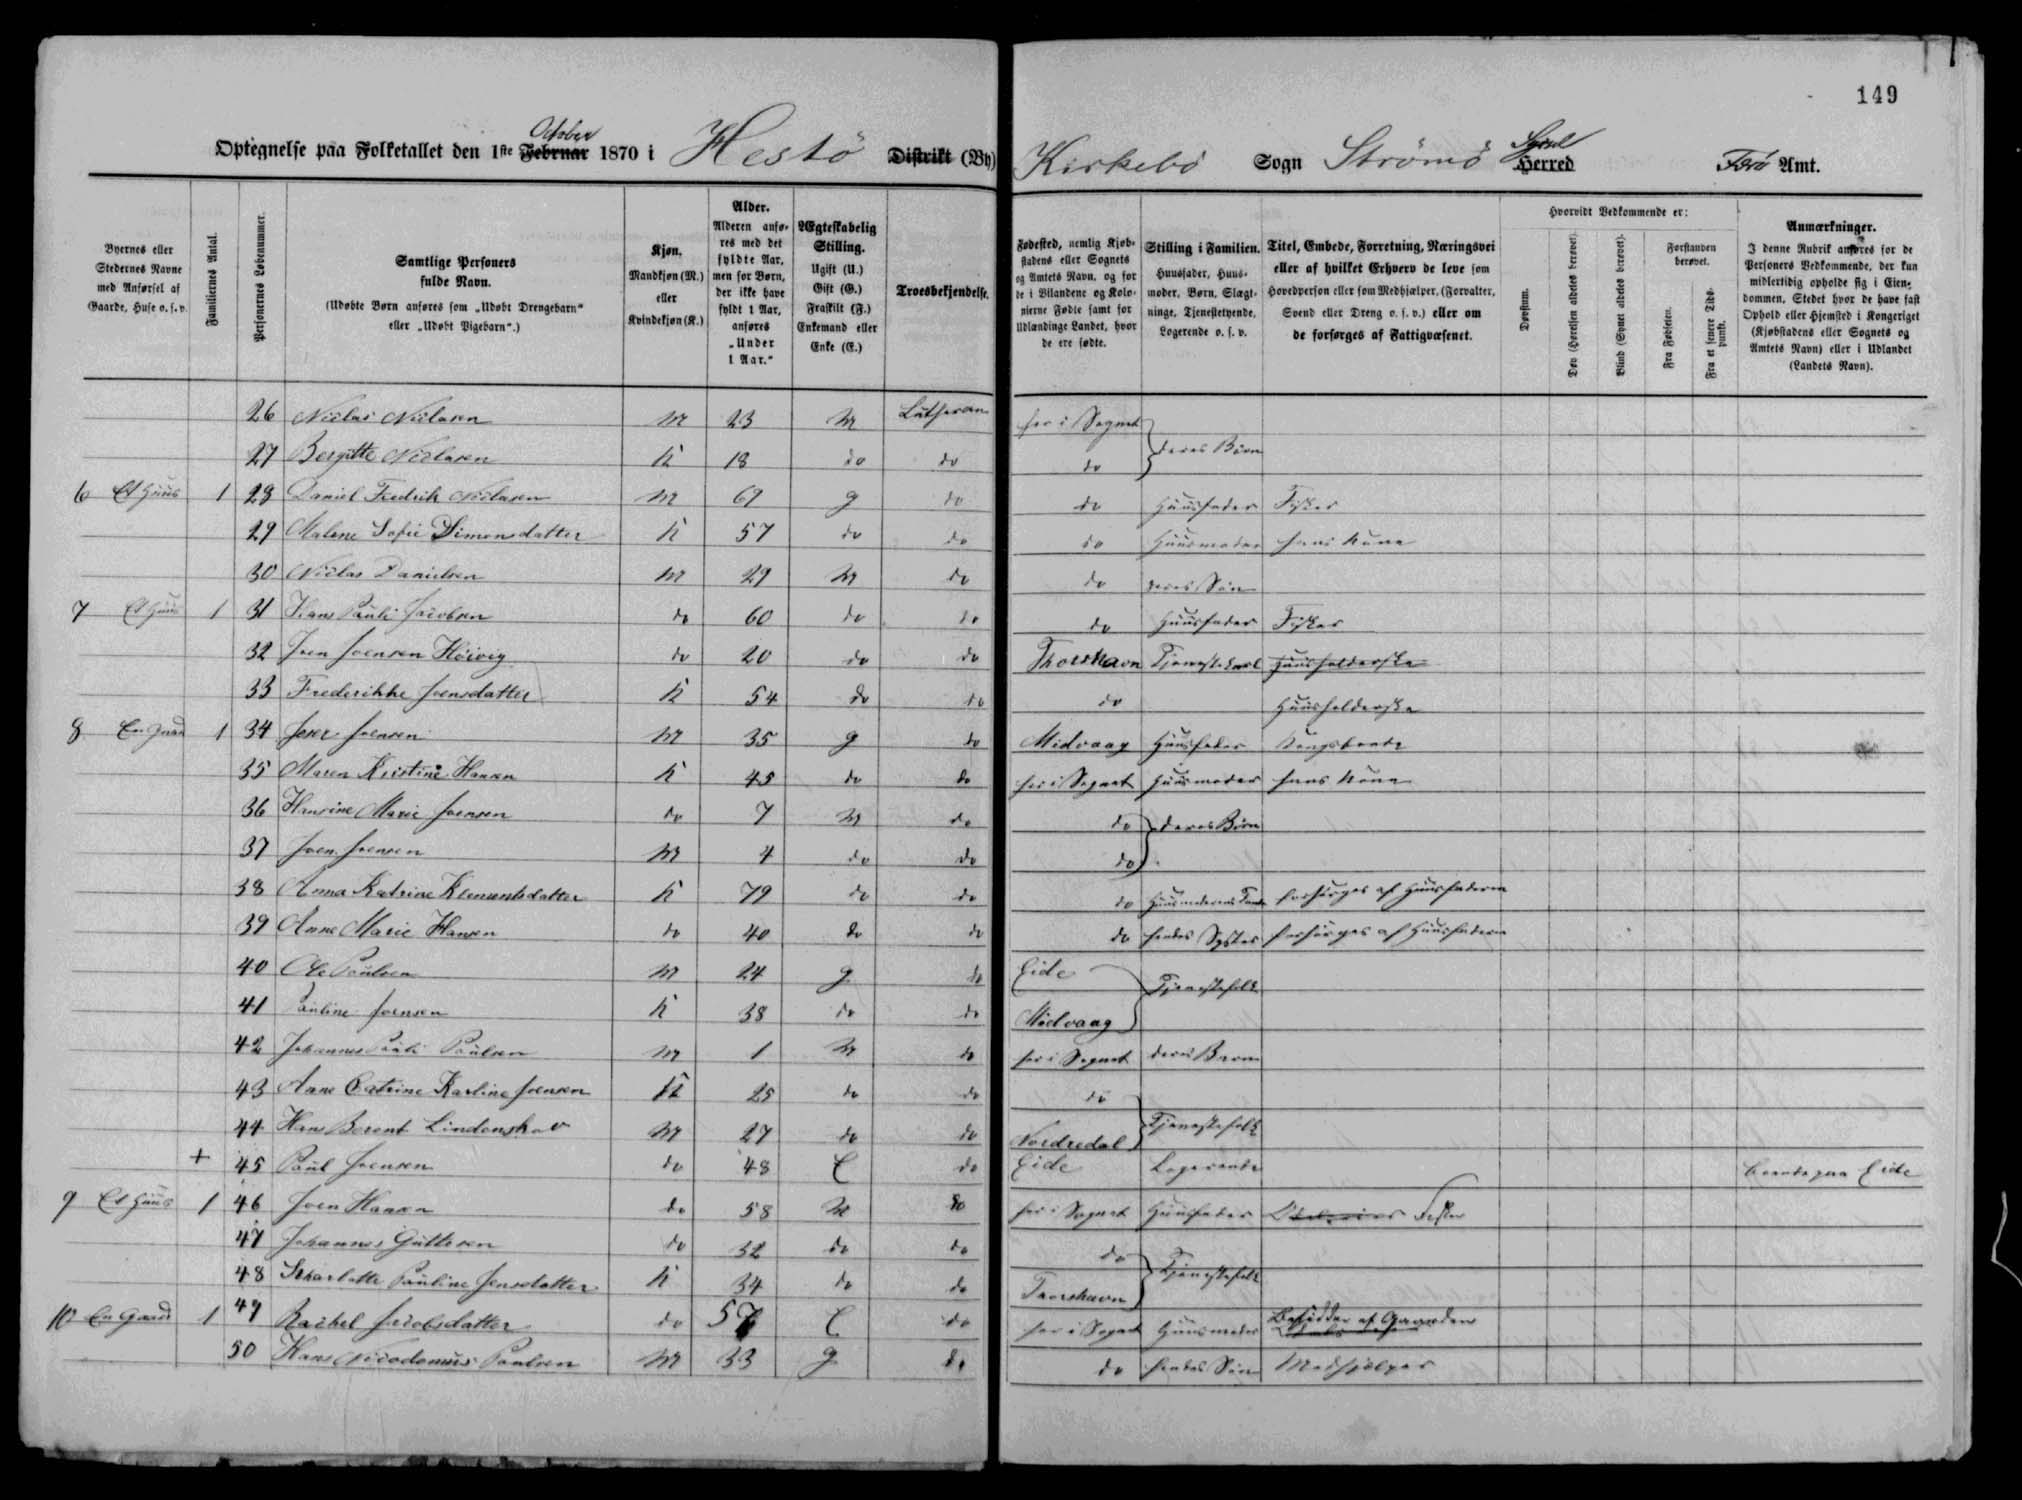 149
October
Optegnelse paa Folketallet den 1ste Februar 1870 i Hestö Distrikt (By)
Kirkebö Sogn Strömö Syssel Herred Færö Amt.
Byernes eller Stedernes Navne med Anførsel af Gaarde, Huse o. s. v.
Familiernes Antal.
Personernes Løbenummer.
Samtlige Personers fulde Navn.
(Udøbte Børn anføres som „Udøbt Drengebarn“ eller „Udøbt Pigebarn“.)
Kjøn.
Mandkjøn (M.) eller Kvindekjøn (K.)
Alder.
Alderen anføres med det fyldte Aar, men for Børn, der ikke have fyldt 1 Aar, anføres „Under 1 Aar.“
Ægteskabelig Stilling.
Ugift (U.) Gift (G.) Fraskilt (F.) Enkemand eller Enke (E.)
Troesbekjendelse.
Fødested, nemlig Kjøbstadens eller Sognets og Amtets Navn, og for de i Bilandene og Kolonierne Fødte samt for Udlændinge Landet, hvor de ere fødte.
Stilling i Familien.
Huusfader, Huusmoder, Børn, Slægtninge, Tjenestetyende, Logerende o. s. v.
Titel, Embede, Forretning, Næringsvei eller af hvilket Erhverv de leve som Hovedperson eller som Medhjælper, (Forvalter, Svend eller Dreng o. s. v.) eller om de forsørges af Fattigvæsenet.
Hvorvidt Vedkommende er:
Døvstum.
Døv (Hørelsen aldeles berøvet).
Blind (Synet aldeles berøvet).
Forstanden berøvet.
Fra Fødselen.
Fra et senere Tidspunkt.
Anmærkninger.
I denne Rubrik anføres for de Personers Vedkommende, der kun midlertidig opholde sig i Eiendommen, Stedet hvor de have fast Ophold eller Hjemsted i Kongeriget (Kjøbstadens eller Sognets og Amtets Navn) eller i Udlandet (Landets Navn).
26 Niclas Niclasen M 23 U Lutheran her i Sognet
27 Bergitte Niclasen K 18 do do do deres Börn
6 Et Huus 1 28 Daniel Fredrik Niclasen M 69 g do do Huusfader Fisker
29 Malene Sofie Simonsdatter K 57 do do do Huusmoder hans Kone
30 Niclas Danielsen M 29 U do do deres Sön
7 Et Huus 1 31 Hans Pauli Jacobsen do 60 do do do Huusfader Fisker
32 Joen Joensen Höivig do 20 do do Thorshavn Tjenestekarl Huusholderske
33 Frederikke Joensdatter K 54 do do do Huusholderske
8 En Gaard 1 34 Joen Joensen M 35 g do Midvaag Huusfader Kongsbonde
35 Maren Kristine Hansen K 45 do do her i Sognet Huusmoder hans Kone
36 Hansine Marie Joensen do 7 U do do deres Börn
37 Joen Joensen M 4 do do do
38 Anna Katrine Klementsdatter K 79 do do do Huusmoderens Tante forsörges af Huusfaderen
39 Anne Marie Hansen do 40 do do do hendes Syster forsörges af Huusfaderen
40 Ole Poulsen M 24 g do Eide Tjenestefolk
41 Pauline Joensen K 38 do do Midvaag
42 Johannes Pauli Poulsen M 1 U do her i Sognet deres Barn
43 Anne Catrine Karline Joensen K 25 do do do Tjenestefolk
44 Hans Berent Lindenskov M 27 do do Nordredal
+ 45 Poul Joensen do 48 E do Eide Logerende Bonde paa Eide
9 Et Huus 1 46 Joen Hansen do 58 U do her i Sognet Huusfader Fisker
47 Johannes Guttesen do 32 do do do Tjenestefolk
48 Scharlotte Pauline Jensdatter K 34 do do Thorshavn
10 En Gaard 1 49 Rachel Jacobsdatter do 57 E do her i Sognet Huusmoder Besidder af Gaarden
50 Hans Nicodemus Poulsen M 33 g do do hendes Sön Medhjælper